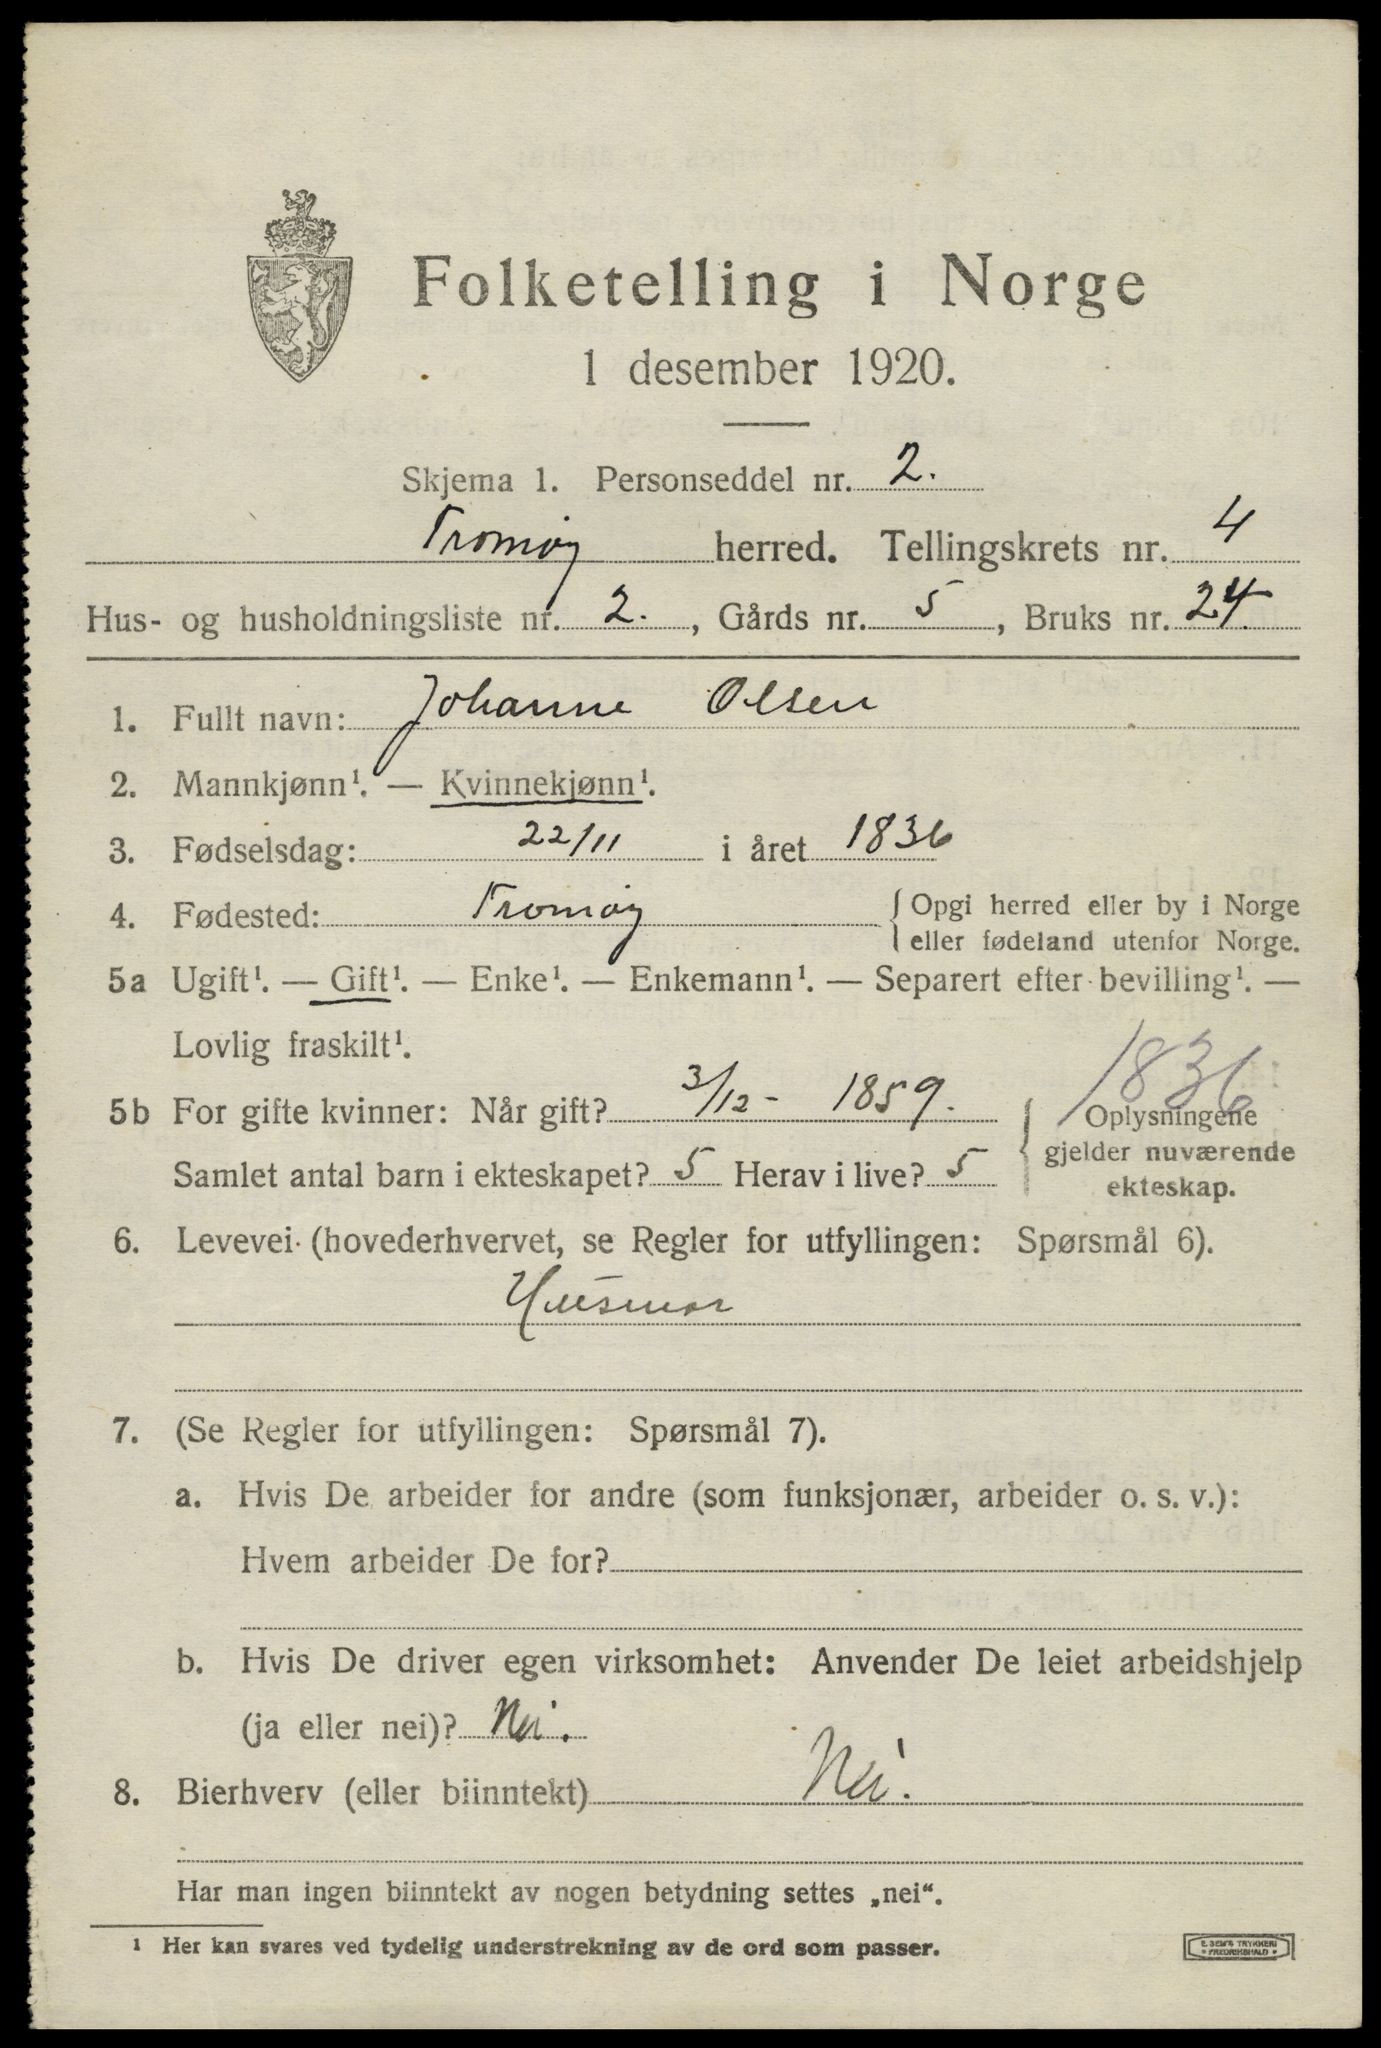 Folketelling i Norge
1 desember 1920.
Skjema 1. Personseddel nr. 2.
Tromøy herred. Tellingskrets nr. 4
Hus- og husholdningsliste nr. 2. , Gårds nr. 5 , Bruks nr. 24.
1. Fullt navn: Johanne Olsen
2. Mannkjønn¹. — Kvinnekjønn¹.
3. Fødselsdag: 22/11 i året 1836
4. Fødested: Tromøy { Opgi herred eller by i Norge
eller fødeland utenfor Norge.
5a Ugift¹. — Gift¹. — Enke¹. — Enkemann¹. — Separert efter bevilling¹. —
Lovlig fraskilt¹.
1836
5b For gifte kvinner: Når gift? 3/12 - 1859. { Oplysningene
gjelder nuværende
Samlet antal barn i ekteskapet? 5 Herav i live? 5 ekteskap.
6. Levevei (hovederhvervet, se Regler for utfyllingen: Spørsmål 6).
Husmor
7. (Se Regler for utfyllingen: Spørsmål 7).
a. Hvis De arbeider for andre (som funksjonær, arbeider o. s. v.):
Hvem arbeider De for?
b. Hvis De driver egen virksomhet: Anvender De leiet arbeidshjelp
(ja eller nei)? Nei.
8. Bierhverv (eller biinntekt) Nei.
Har man ingen biinntekt av nogen betydning settes „nei“.
¹ Her kan svares ved tydelig understrekning av de ord som passer.
E. SEM'S TRYKKERI
• FREDRIKSHALD •